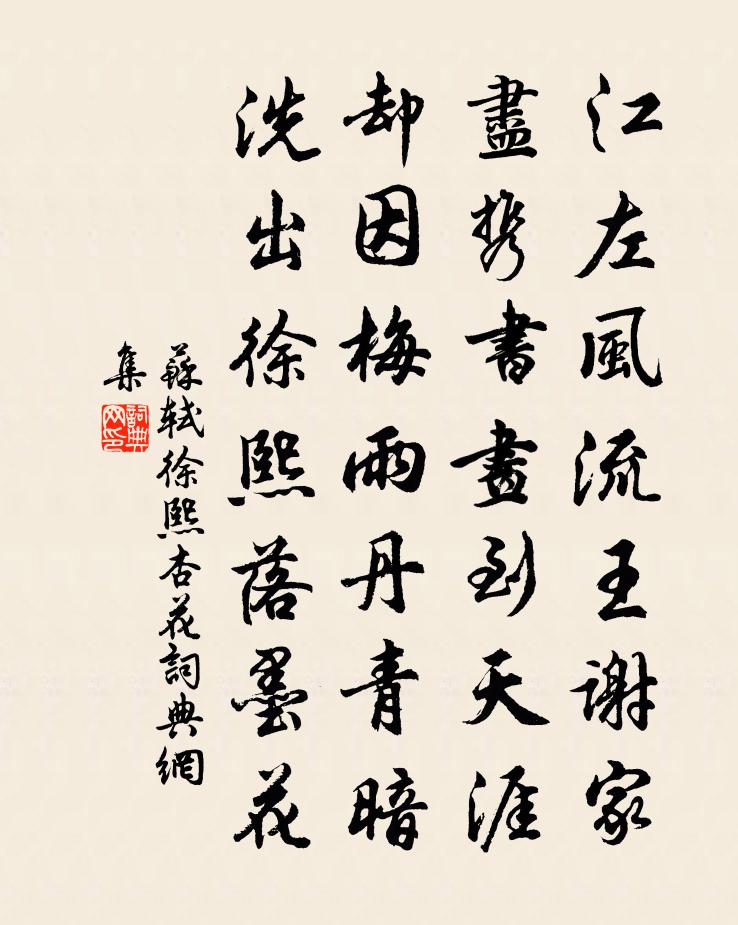 江左風流王謝家
盡攜書畫到天涯
却因梅雨丹青暗
洗出徐熙落墨花
蘇軾徐熙杏花詞典網
集
詞典
网印